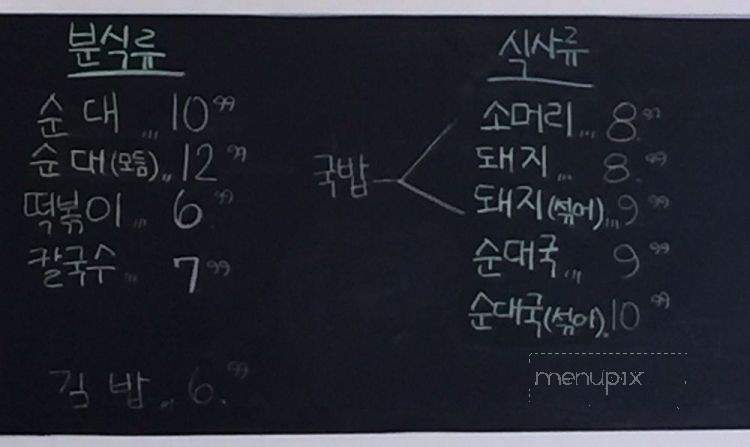 분식류
순대 ... 10.99
순대(모듬) .. 12.99
떡볶이 ... 6.99
칼국수 ... 7.99
김밥 ... 6.99
식사류
국밥
소머리 ... 8.99
돼지 ... 8.99
돼지(섞어) ... 9.99
순대국 ... 9.99
순대국(섞어) .. 10.99
menupix